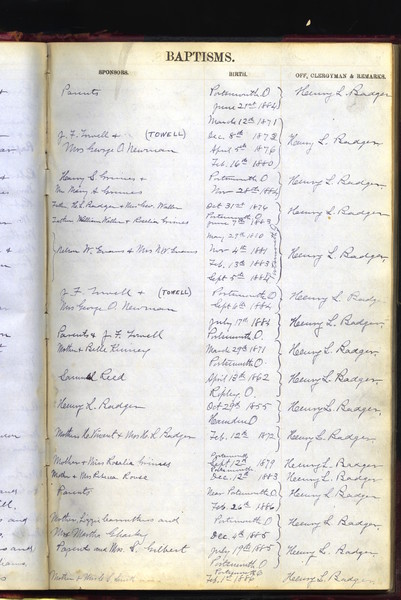 BAPTISMS.
SPONSORS. BIRTH. OFF. CLERGYMAN & REMARKS.
Parents Portsmouth O Henry L. Badger
June 21st 1884
March 12th 1871
J. F. Towell & (TOWELL) Dec 8th 1873
Mrs George O. Newman April 5th 1876 Henry L. Badger
Feb. 16th 1880
Henry S. Grimes & Portsmouth O. Henry L. Badger
Mrs Mary Grimes Nov 28th 1884
H. L. Badger & Mrs Geo. Oct 31st 1876
Portsmouth O. Henry L. Badger
William Waller & Rosalia Grimes June 7th 1883
May 29th 1880
Nelson W. Evans & Mrs N W Evans Nov 4th 1881 Henry L. Badger
Feb. 13th 1883
Sept 5th 1884
J. F. Towell & (TOWELL) Portsmouth O. Henry L. Badge
Mrs George O. Newman Sept 6th 1884
July 17th 1884 Henry L. Badger,
Parents & J. F. Towell Portsmouth O.
Mother & Belle Kinney March 29th 1871 Henry L. Badger
Portsmouth O
Samuel Reed April 18th 1862 Henry L. Badger,
Ripley O.
Henry L. Badger Oct 29th 1855 Henry L. Badger,
Hamden O
Mother & Mrs H. L. Badger Feb. 12th 1872 Henry L. Badger,
Portsmouth
Mother & Miss Rosalia Grimes Sept 12th 1879 Henry L. Badger
Portsmouth
Mother & Mrs Rebecca Dec. 12th 1883 Henry L. Badger
Parents Near Portsmouth O Henry L. Badger
Feb. 26th 1886
Mother, Lizzie Carruthers and Portsmouth O Henry L. Badger,
Mrs Martha Dec 4th 1885
Parents and Mrs. S. Gilbert July 19th 1885 Henry L. Badger,
Portsmouth O.
Portsmouth O
Mother & Feb. 1st 1886 Henry L. Badger